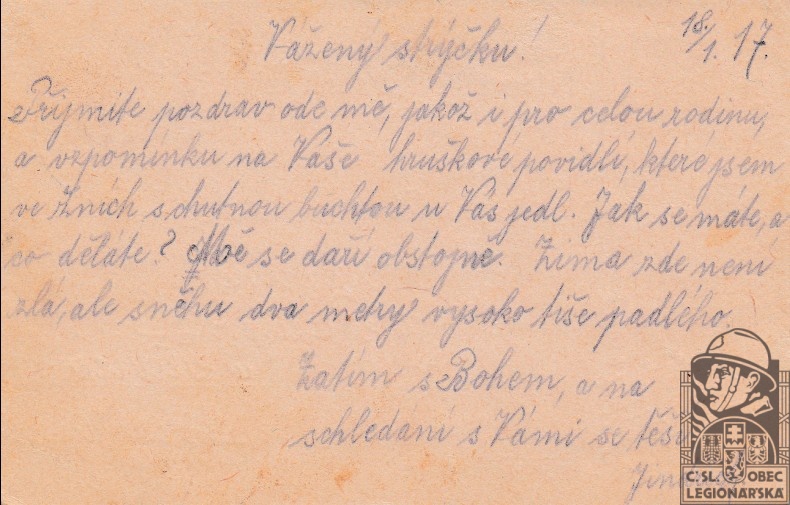 18./1. 17.
Vážený strýčku!
Přijmite pozdrav ode mě, jakož i pro celou rodinu,
a vzpomínku na Vaše hruškové povidlí, které jsem
ve žních s chutnou buchtou u Vás jedl. Jak se máte, a
co děláte? Mě se daří obstojně. Zima zde není
zlá, ale sněhu dva metry vysoko tiše padlého.
Zatím s Bohem, a na
schledání s Vámi se těší
ČSL. OBEC
LEGIONÁŘSKÁ